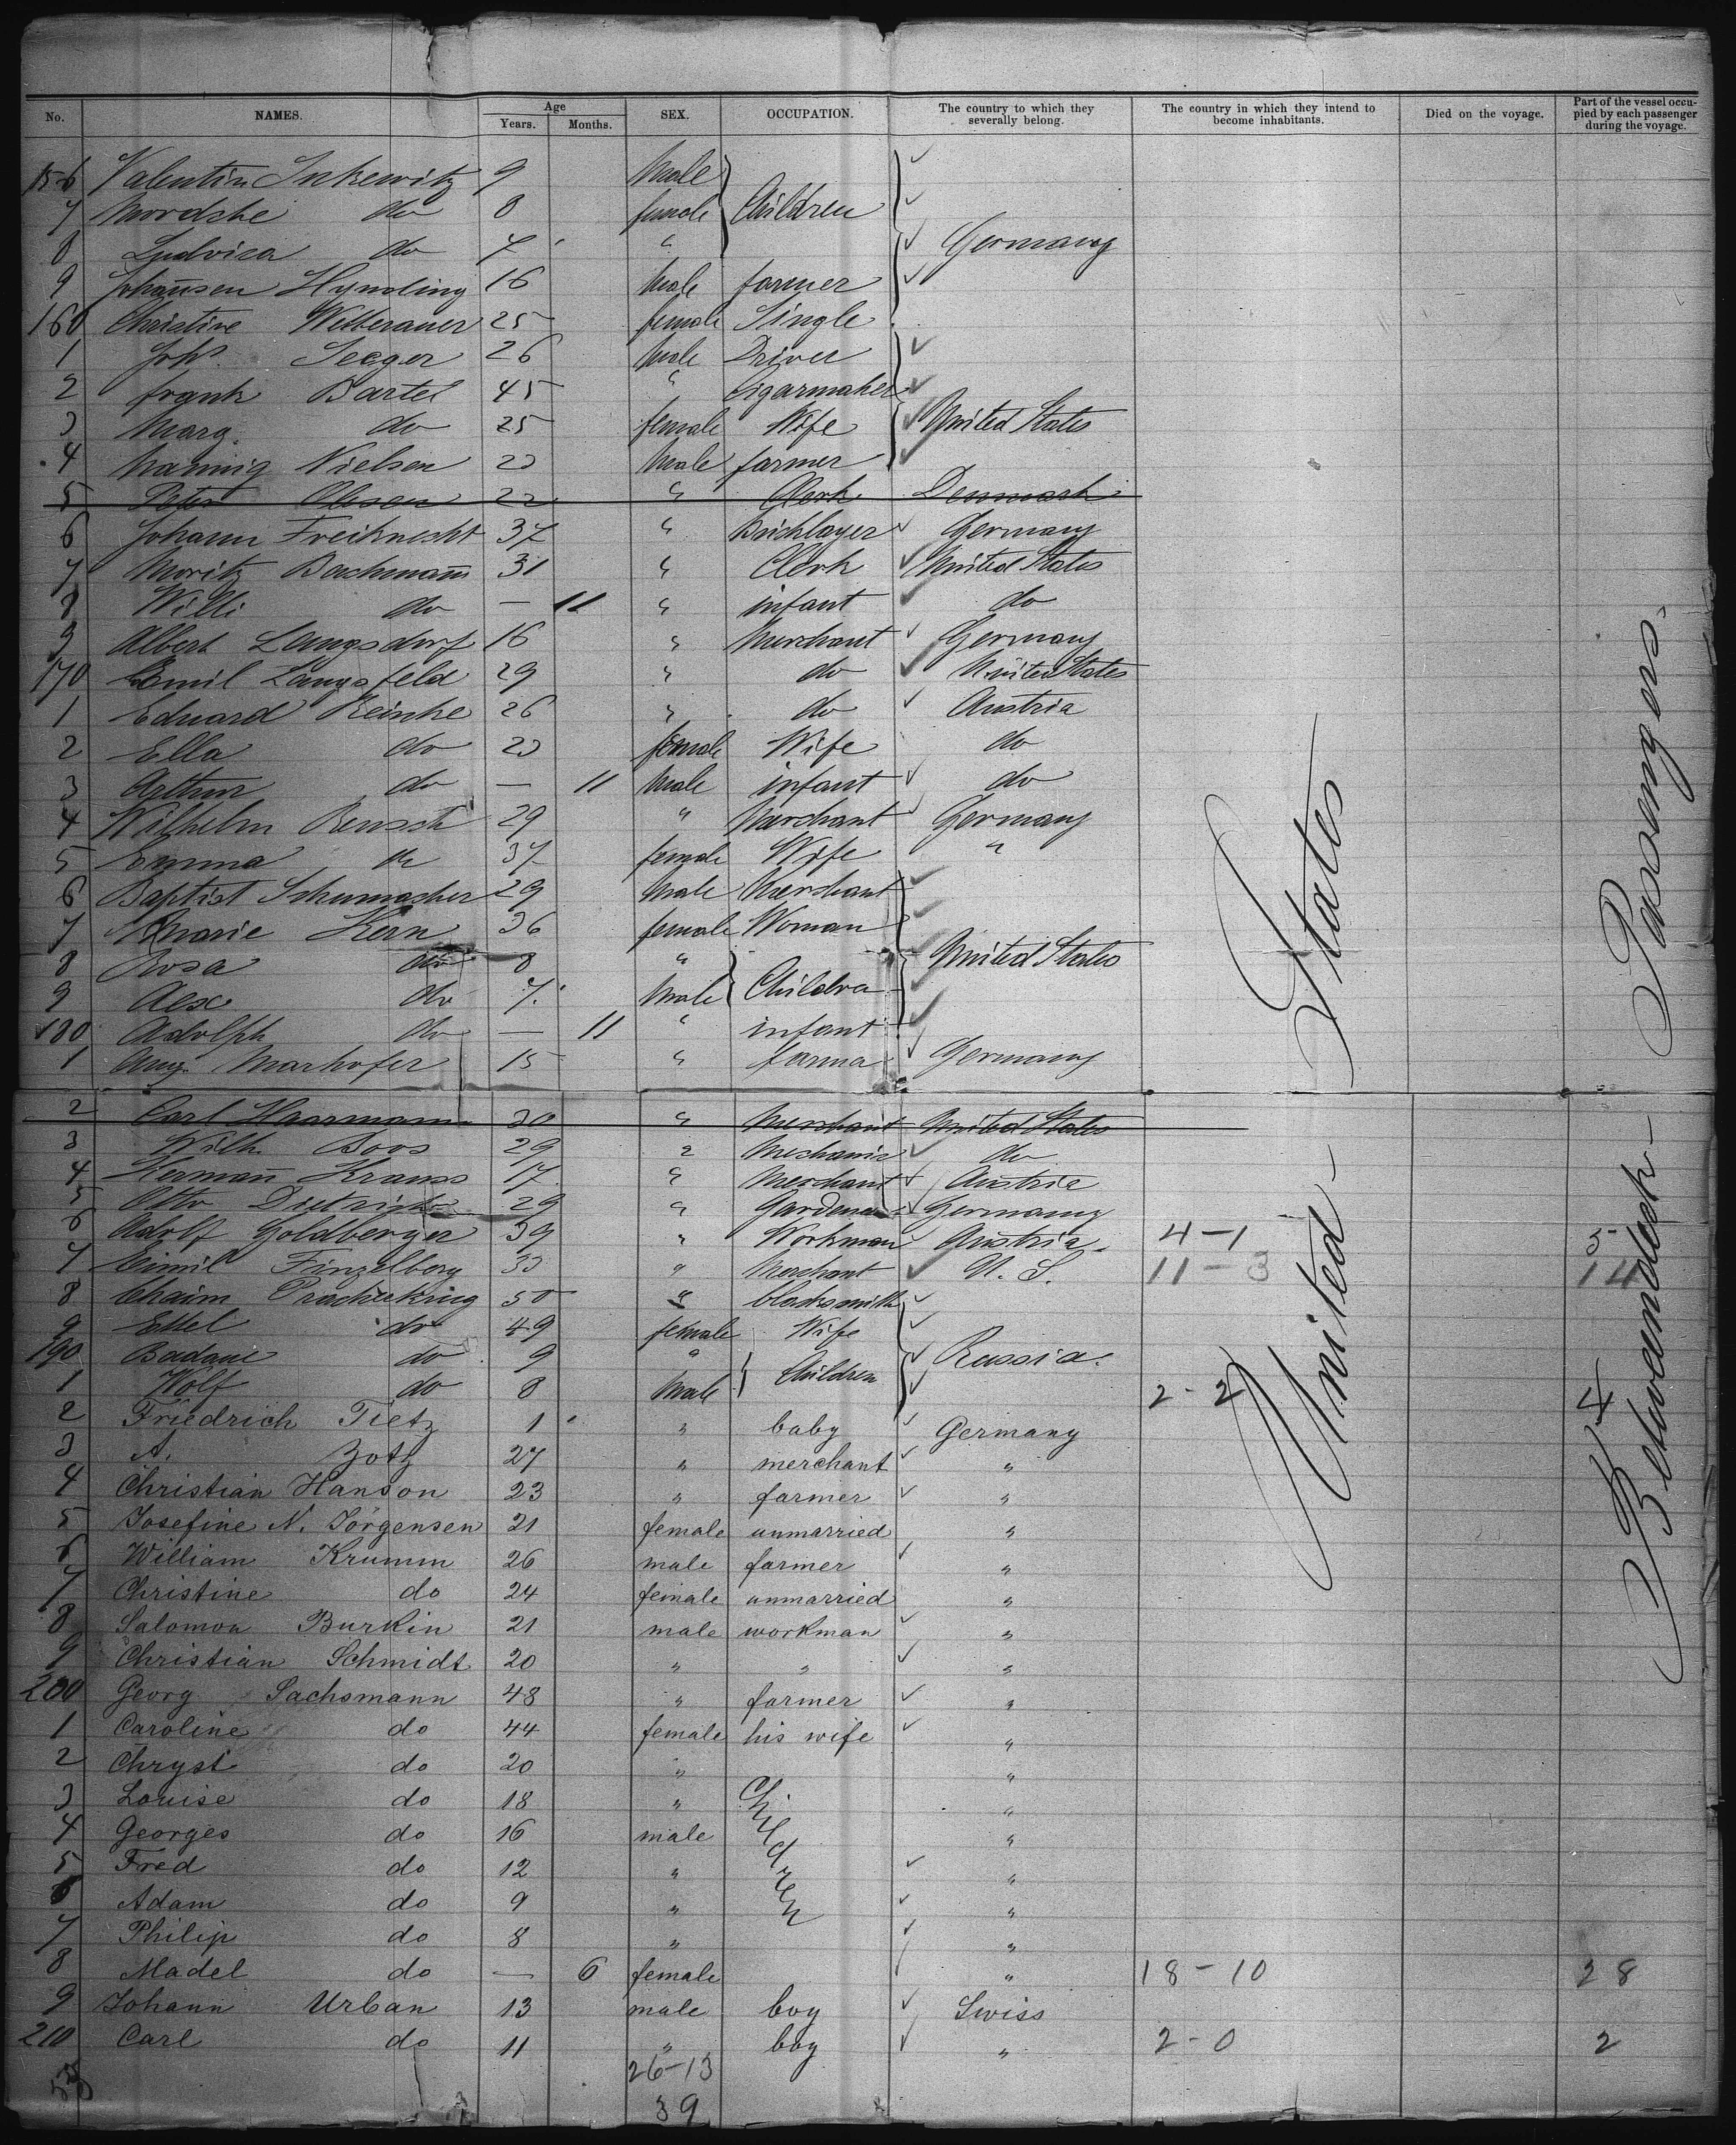 No. NAMES. Age Years. Months. SEX. OCCUPATION. The country to which they severally belong. The country in which they intend to become inhabitants. Died on the voyage. Part of the vessel occupied by each passenger during the voyage.
156 Valentin Inkewitz 9 Male
7 Mordske do 8 female Children
8 Ludvica do 7 " Germany
9 Johansen Hynding 16 Male farmer
160 Christine 25 female Single
1 Joh. Seeger 26 Male Driver
2 frank Bartel 45 " Cigarmaker
3 Marg. do 25 female Wife United States
4 Nielsen 23 Male farmer
5 Peter Olesen 22 " Clerk Denmark
6 Johann Freiknecht 37 " Bricklayer Germany
7 Moritz Bachmann 31 " Clerk United States
8 Willi do — 11 " infant do
9 Albert Langsdorf 16 " Merchant Germany
170 Emil Langsfeld 29 " do United States
1 Eduard Reinke 26 " do Austria
2 Ella do 23 female Wife do
3 Arthur do — 11 Male infant do
4 Wilhelm Reusch 29 " Merchant Germany
5 Emma do 37 female Wife "
6 Baptist Schumacher 29 Male Merchant
7 Marie Kern 36 female Woman
8 Rosa do 8 " United States
9 Alex do 7 Male Children
180 Adolph do — 11 " infant
1 Aug. Marhofer 15 " farmer Germany
2 Carl Haarmann 30 " Merchant United States
3 Wilh. Boos 29 " Mechanic do
4 Hermann Krauss 17 " Merchant Austria
5 Otto Dietrich 29 " Gardener Germany
6 Adolf Goldberger 39 " Workman Austria 4-1 5
7 Eimil Finzelberg 33 " Merchant U. S. 11-3 14
8 Chaim 50 " blacksmith
9 Ettel do 49 female Wife
190 Badane do 9 " Children Russia.
1 Wolf do 8 Male 2-2 4
2 Friedrich Tietz 1 " baby Germany
3 A. Zotz 27 " merchant "
4 Christian Hanson 23 " farmer "
5 Josefine N. Jörgensen 21 female unmarried "
6 William Krumm 26 male farmer "
7 Christine do 24 female unmarried "
8 Salomon Burkin 21 male workman "
9 Christian Schmidt 20 " " "
200 Georg Sachsmann 48 " farmer "
1 Caroline do 44 female his wife "
2 Chryst. do 20 " "
3 Louise do 18 " Children "
4 Georges do 16 male "
5 Fred do 12 " "
6 Adam do 9 " "
7 Philip do 8 " "
8 Madel do — 6 female " 18-10 28
9 Johann Urban 13 male boy Swiss
210 Carl do 11 " boy " 2-0 2
26-13
39
United States
Betweendeck Passengers.